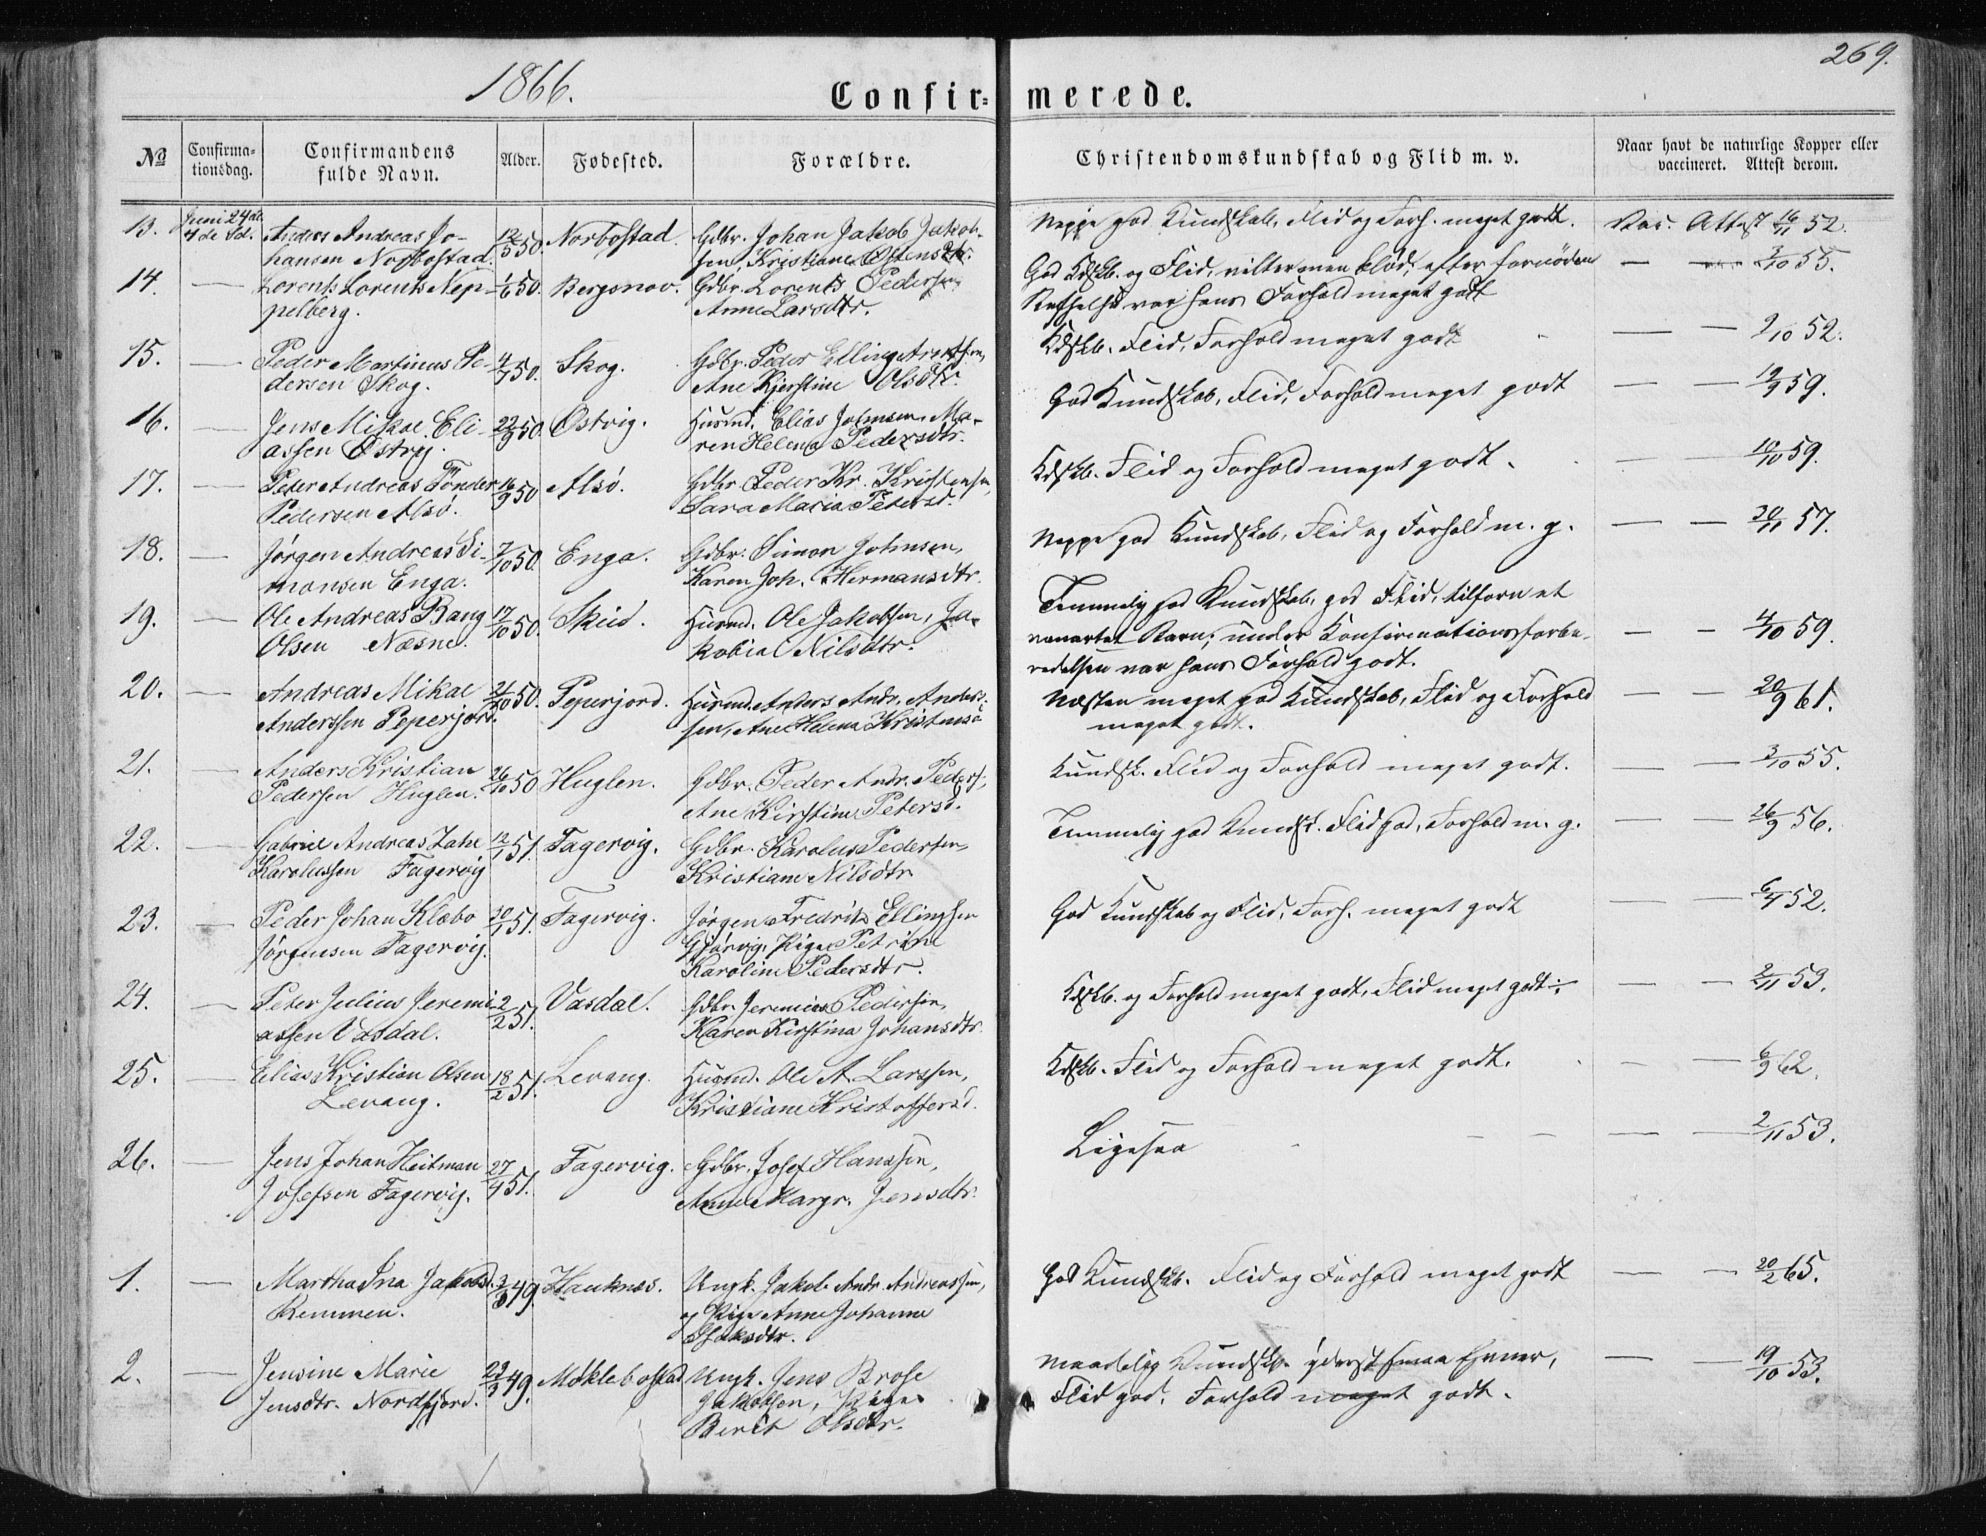 269.
1866.
Confir= merede.
No
Confirma=
tionsdag.
Confirmandens
fulde Navn.
Alder.
Fødested.
Forældre.
Christendomskundskab og Flid m. v.
Naar havt de naturlige Kopper eller
vaccineret. Attest derom.
13. Juni 24de Anders Andreas Jo- 12/5 50. Norbostad. Gdbr. Johan Jakob Jakob- Neppe god Kundskab, Flid og Forh. meget godt. Vac. Attest 16/11 52.
hansen Norbostad. sen, Kristiane
14. — Lorents Lorents Nep- 1/6 50. Bergsnov. Gdbr. Lorents Pedersen, God Kdskb. og Flid, efter — 3/10 55.
pelberg. Anne Larsdtr. var hans Forhold meget godt
15. — Peder Martinus Pe- 4/7 50. Skog. Gdbr. Peder Elling Kdskb. Flid, Forhold meget godt — — 2/10 52.
dersen Skog. Ane Kjerstine Olsdtr.
16. — Jens Mikal Eli- 22/9 50. Østvig. Husmd. Elias Johnsen, Ma- God Kundskab, Flid, Forhold meget godt — — 19/9 59.
assen Østvig. ren Helena Pedersdtr.
17. — Peter Andreas Tønder 16/9 50 Alsø. Gdbr. Peder Kr. Kristensen, Kdskb. Flid og Forhold meget godt. — — 19/10 59.
Pedersen Alsø. Sara Maria Petersd.
18. — Jørgen Andreas Si- 7/10 50. Enga. Gdbr. Simon Johnsen, Neppe god Kundskab, Flid og Forhold m. g. — — 20/11 57.
monsen Enga. Karen Joh. Hermansdtr.
19. — Ole Andreas Bang 17/10 50. Husmd. Ole Jakobsen, Ja- Temmelig god Kundskab, god Flid, tilforn et
Olsen Næsne. kobia Nilsdtr. vanartet Barn; under Konfirmationsforbe- — — 4/10 59.
redelsen var hans Forhold godt.
20. — Andreas Mikal 21/10 50. Peperjord. Husmd. Anders Andr. Anders- Næsten meget god Kundskab, Flid og Forhold — — 20/9 61.
Anderssen Peperjord. sen, Ane Helena meget godt.
21. — Anders Kristian 26/10 50 Huglen. Gdbr. Peder Andr. Peders., Kundsk. Flid og Forhold meget godt. — — 3/10 55.
Pedersen Huglen. Ane Kirstine Petersd.
22. — Gabriel Andreas Zahl 12/1 51. Fagervig. Gdbr. Karolus Pedersen, Temmelig god Kundsk. Flid god, Forhold m. g. — — 26/9 56.
Karolussen Fagervig Kristiane Nilsdtr
23. — Peder Johan Klæbo 30/1 51. Fagervig. Jørgen Fredrik Ellingsen God Kundskab og Flid, Forh. meget godt — — 6/4 52.
Jørgensen Fagervig. Gjørvig, Pige Petrine
Karoline Pedersdtr.
24. — Peter Julius Jeremi- 2/2 51. Vasdal. Gdbr. Jeremias Pedersen, Kdskb. og Forhold meget godt, Flid meget godt — — 2/11 53.
assen Vasdal. Karen Kirstina Johansdtr.
25. — Elias Kristian Olsen 18/2 51. Levang. Husmd. Ole A. Larssen, Kdskb. Flid og Forhold meget godt. — — 6/9 62.
Levang. Kristiane Kristoffersd.
26. — Jens Johan Heitman 27/4 51. Fagervig. Gdbr. Josef Hanssen, Ligesaa — — 2/11 53.
Josefsen Fagervig. Anne Margr. Jensdtr.
1. — Martha Ina Jakobsd. 3/8 49. Hauknæs. Ungk. Jakob Andr. Andreassen, God Kundskb. Flid og Forhold meget godt — — 20/2 65.
Remmen. og Pige Anne Johanna
Isaksdtr.
2. — Jensine Marie 29/3 49. Moklebostad Ungk. Jens Brose Maadelig Kundskb. yderst smaa Evner, — — 19/10 53.
Jensdtr. Nordfjord. Jakobsen, Pige Flid god, Forhold meget godt.
Berit Olsdtr.